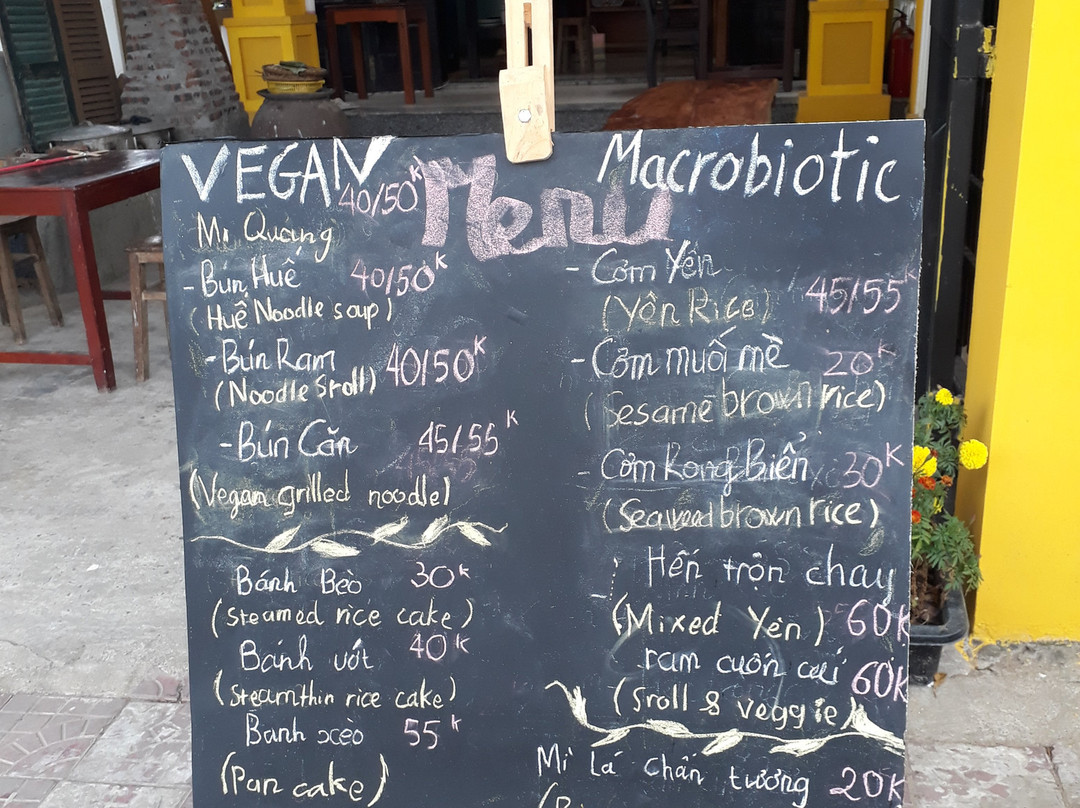 VEGAN
Menu
Macrobiotic
40/50K
Mì Quảng
- Bún Huế 40/50K
(Huế Noodle soup)
- Bún Ram 40/50K
(Noodle Sroll)
- Bún Căn 45/55K
(Vegan grilled noodle)
Bánh Bèo 30K
(Steamed rice cake)
Bánh ướt 40K
(Steamthin rice cake)
Banh xèo 55K
(Pan cake)
- Cơm Yên 45/55K
(Yên Rice)
- Cơm muối mè 20K
(Sesame brown rice)
- Cơm Rong Biển 30K
(Seaweed brown rice)
- Hến trộn chay
(Mixed Yên) 60K
ram cuốn cải 60K
(Sroll & veggie)
Mì lá chấn tương 20K